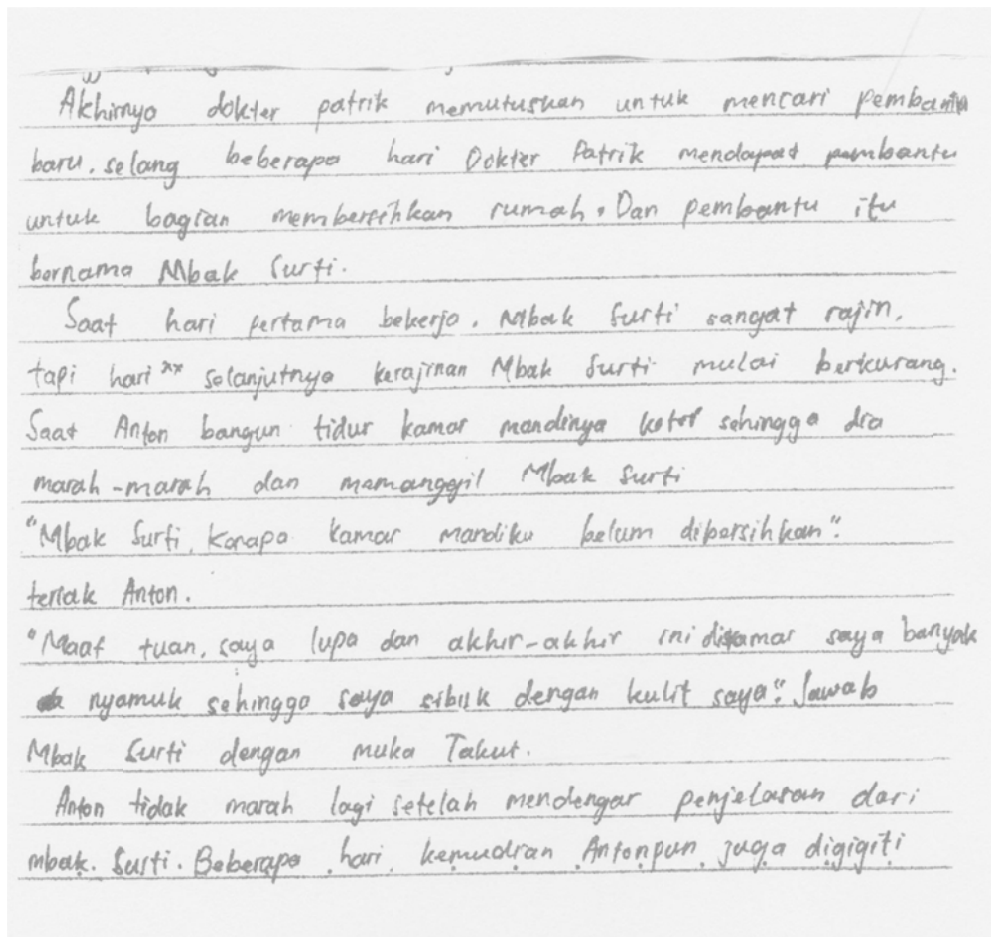 Akhirnya dokter patrik memutuskan untuk mencari pembantu
baru. selang beberapa hari Dokter Patrik mendapat pembantu
untuk bagian membersihkan rumah. Dan pembantu itu
bernama Mbak Surti.
Saat hari pertama bekerja. Mbak Surti sangat rajin.
tapi hari xx selanjutnya kerajinan Mbak Surti mulai berkurang.
Saat Anton bangun tidur kamar mandinya kotor sehingga dia
marah-marah dan memanggil Mbak Surti
"Mbak Surti, kenapa kamar mandiku belum dibersihkan".
teriak Anton.
"Maaf tuan, saya lupa dan akhir-akhir ini dikamar saya banyak
nyamuk sehingga saya sibuk dengan kulit saya". Jawab
Mbak Surti dengan muka Takut.
Anton tidak marah lagi setelah mendengar penjelasan dari
mbak. Surti. Beberapa hari kemudian Antonpun juga digigiti